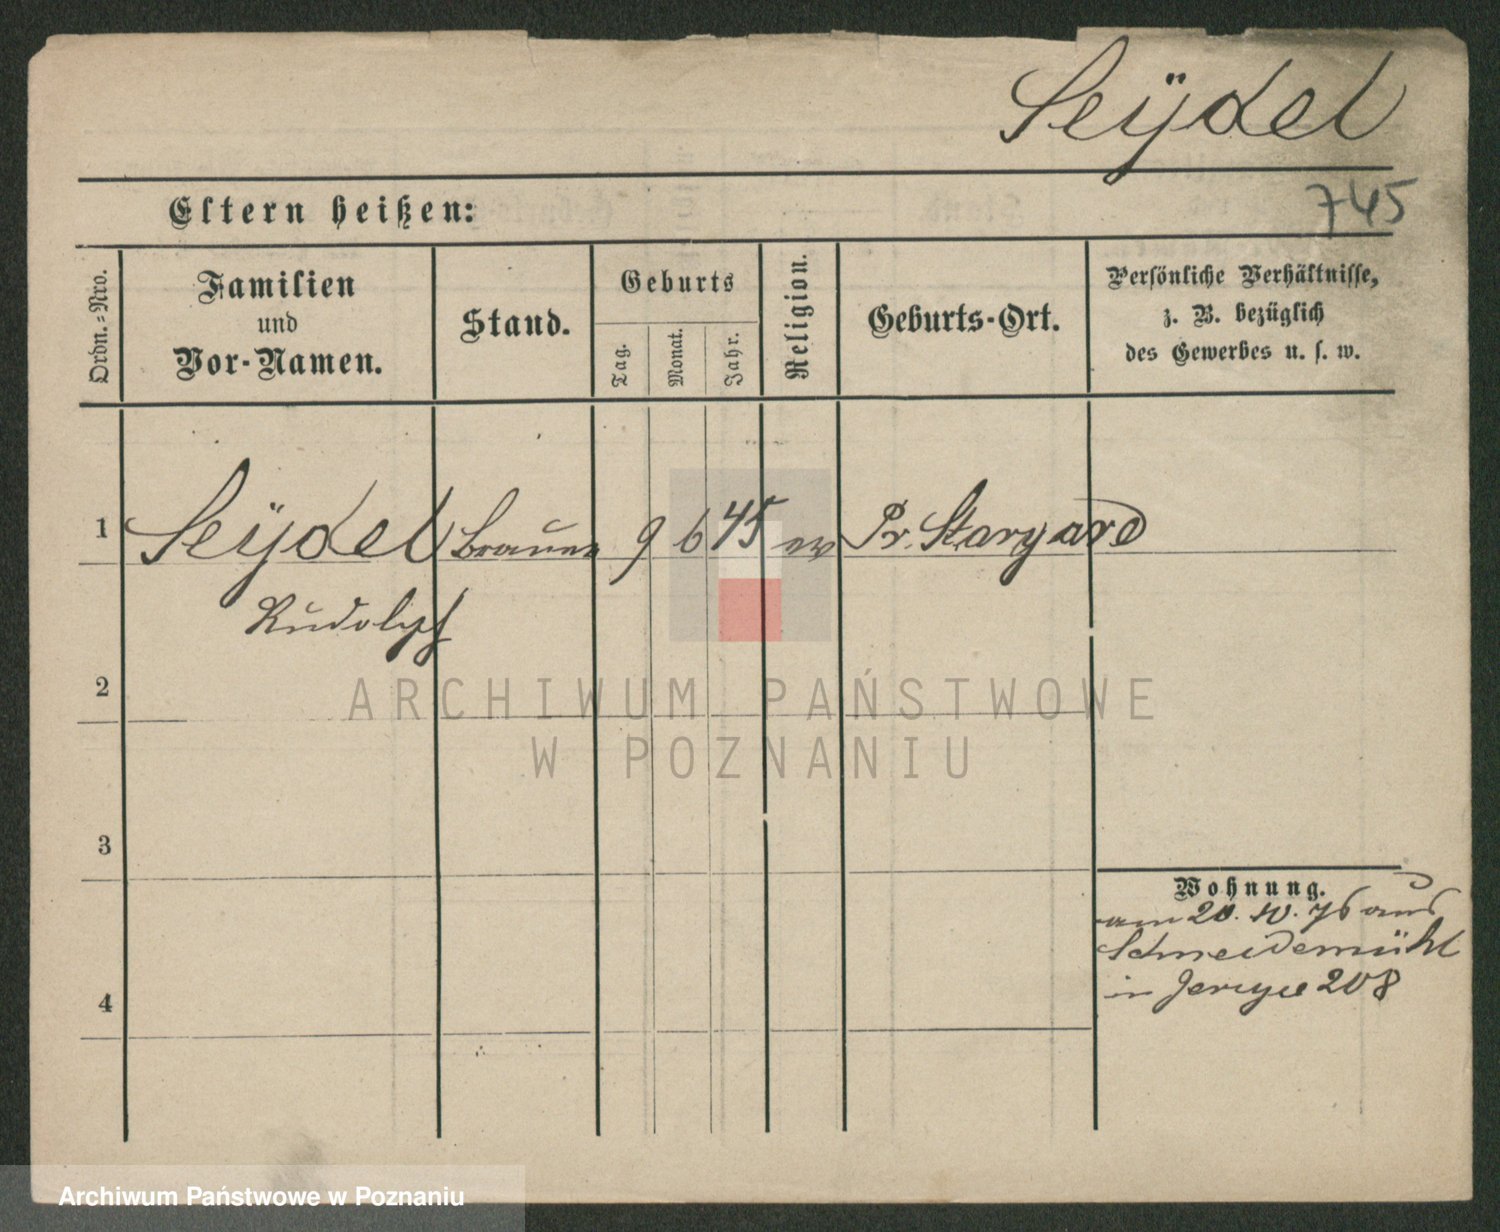 Seÿdel
745
Eltern heißen:
Ordn.-Nro.
Familien
und
Vor-Namen.
Stand.
Geburts
Tag.
Monat.
Jahr.
Religion.
Geburts-Ort.
Persönliche Verhältnisse,
z. B. bezüglich
des Gewerbes u. s. w.
1 Seÿdel Brauer 9 6 45 ev Pr. Stargard
Rudolph
2
3
4
Wohnung.
am 20. 10. 76 aus
Schneidemühl
in 208
ARCHIWUM PAŃSTWOWE
W POZNANIU
Archiwum Państwowe w Poznaniu